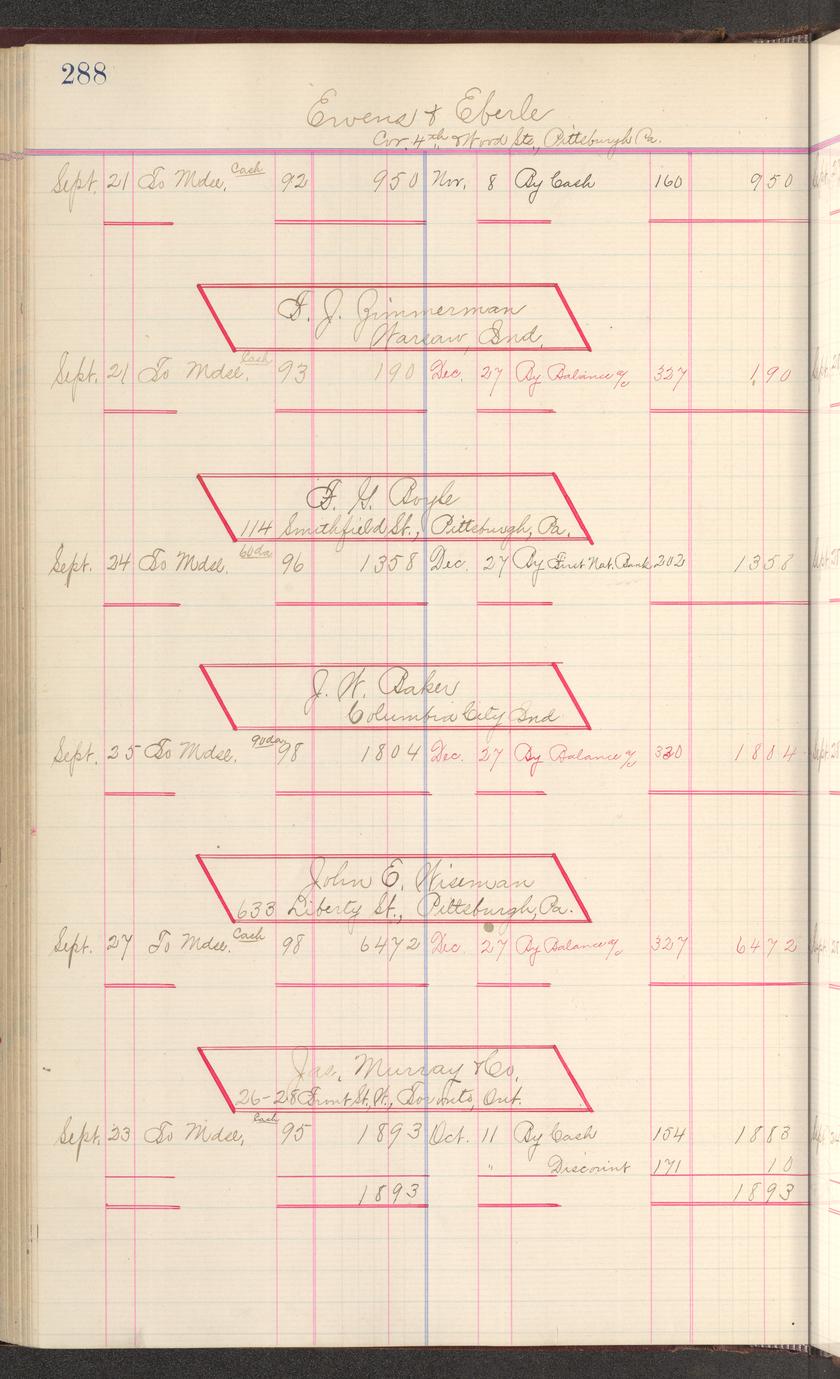 288
Ewens & Eberle
Cor. 4th & Wood Sts., Pittsburgh Pa.
Sept. 21 To Mdse. Cash 92 950 Nov. 8 By Cash 160 950
F. J. Zimmerman
Warsaw, Ind.
Sept. 21 To Mdse. Cash 93 190 Dec. 27 By Balance a/c 327 190
F. G. Boyle
114 Smithfield St., Pittsburgh, Pa.
Sept. 24 To Mdse. 60da 96 1358 Dec. 27 By First Nat. Bank 202 1358
J. W. Baker
Columbia City Ind
Sept. 25 To Mdse. 90da 98 1804 Dec. 27 By Balance a/c 330 1804
John E. Wiseman
633 Liberty St., Pittsburgh, Pa.
Sept. 27 To Mdse. Cash 98 6472 Dec. 27 By Balance a/c 327 6472
Jas. Murray & Co.
26-28 Front St. W., Toronto, Ont.
Sept. 23 To Mdse. Cash 95 1893 Oct. 11 By Cash 154 1883
" Discount 171 10
1893 1893